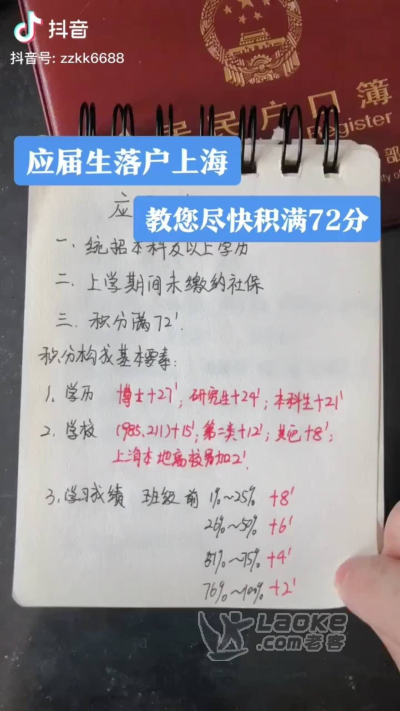 抖音
抖音号: zzkk6688
居民户口簿
Register
应届生落户上海
教您尽快积满72分
应
一、统招本科及以上学历
二、上学期间未缴纳社保
三、积分满72'.
积分构成基本要素:
1、学历 博士+27'; 研究生+24'; 本科生+21'
2、学校 (985、211)+15'; 第二类+12'; 其他+8';
上海本地高校另加2'.
3、学习成绩 班级前 1%~25% +8'
26%~50% +6'
51%~75% +4'
76%~100% +2'
LAOKE
.com老客